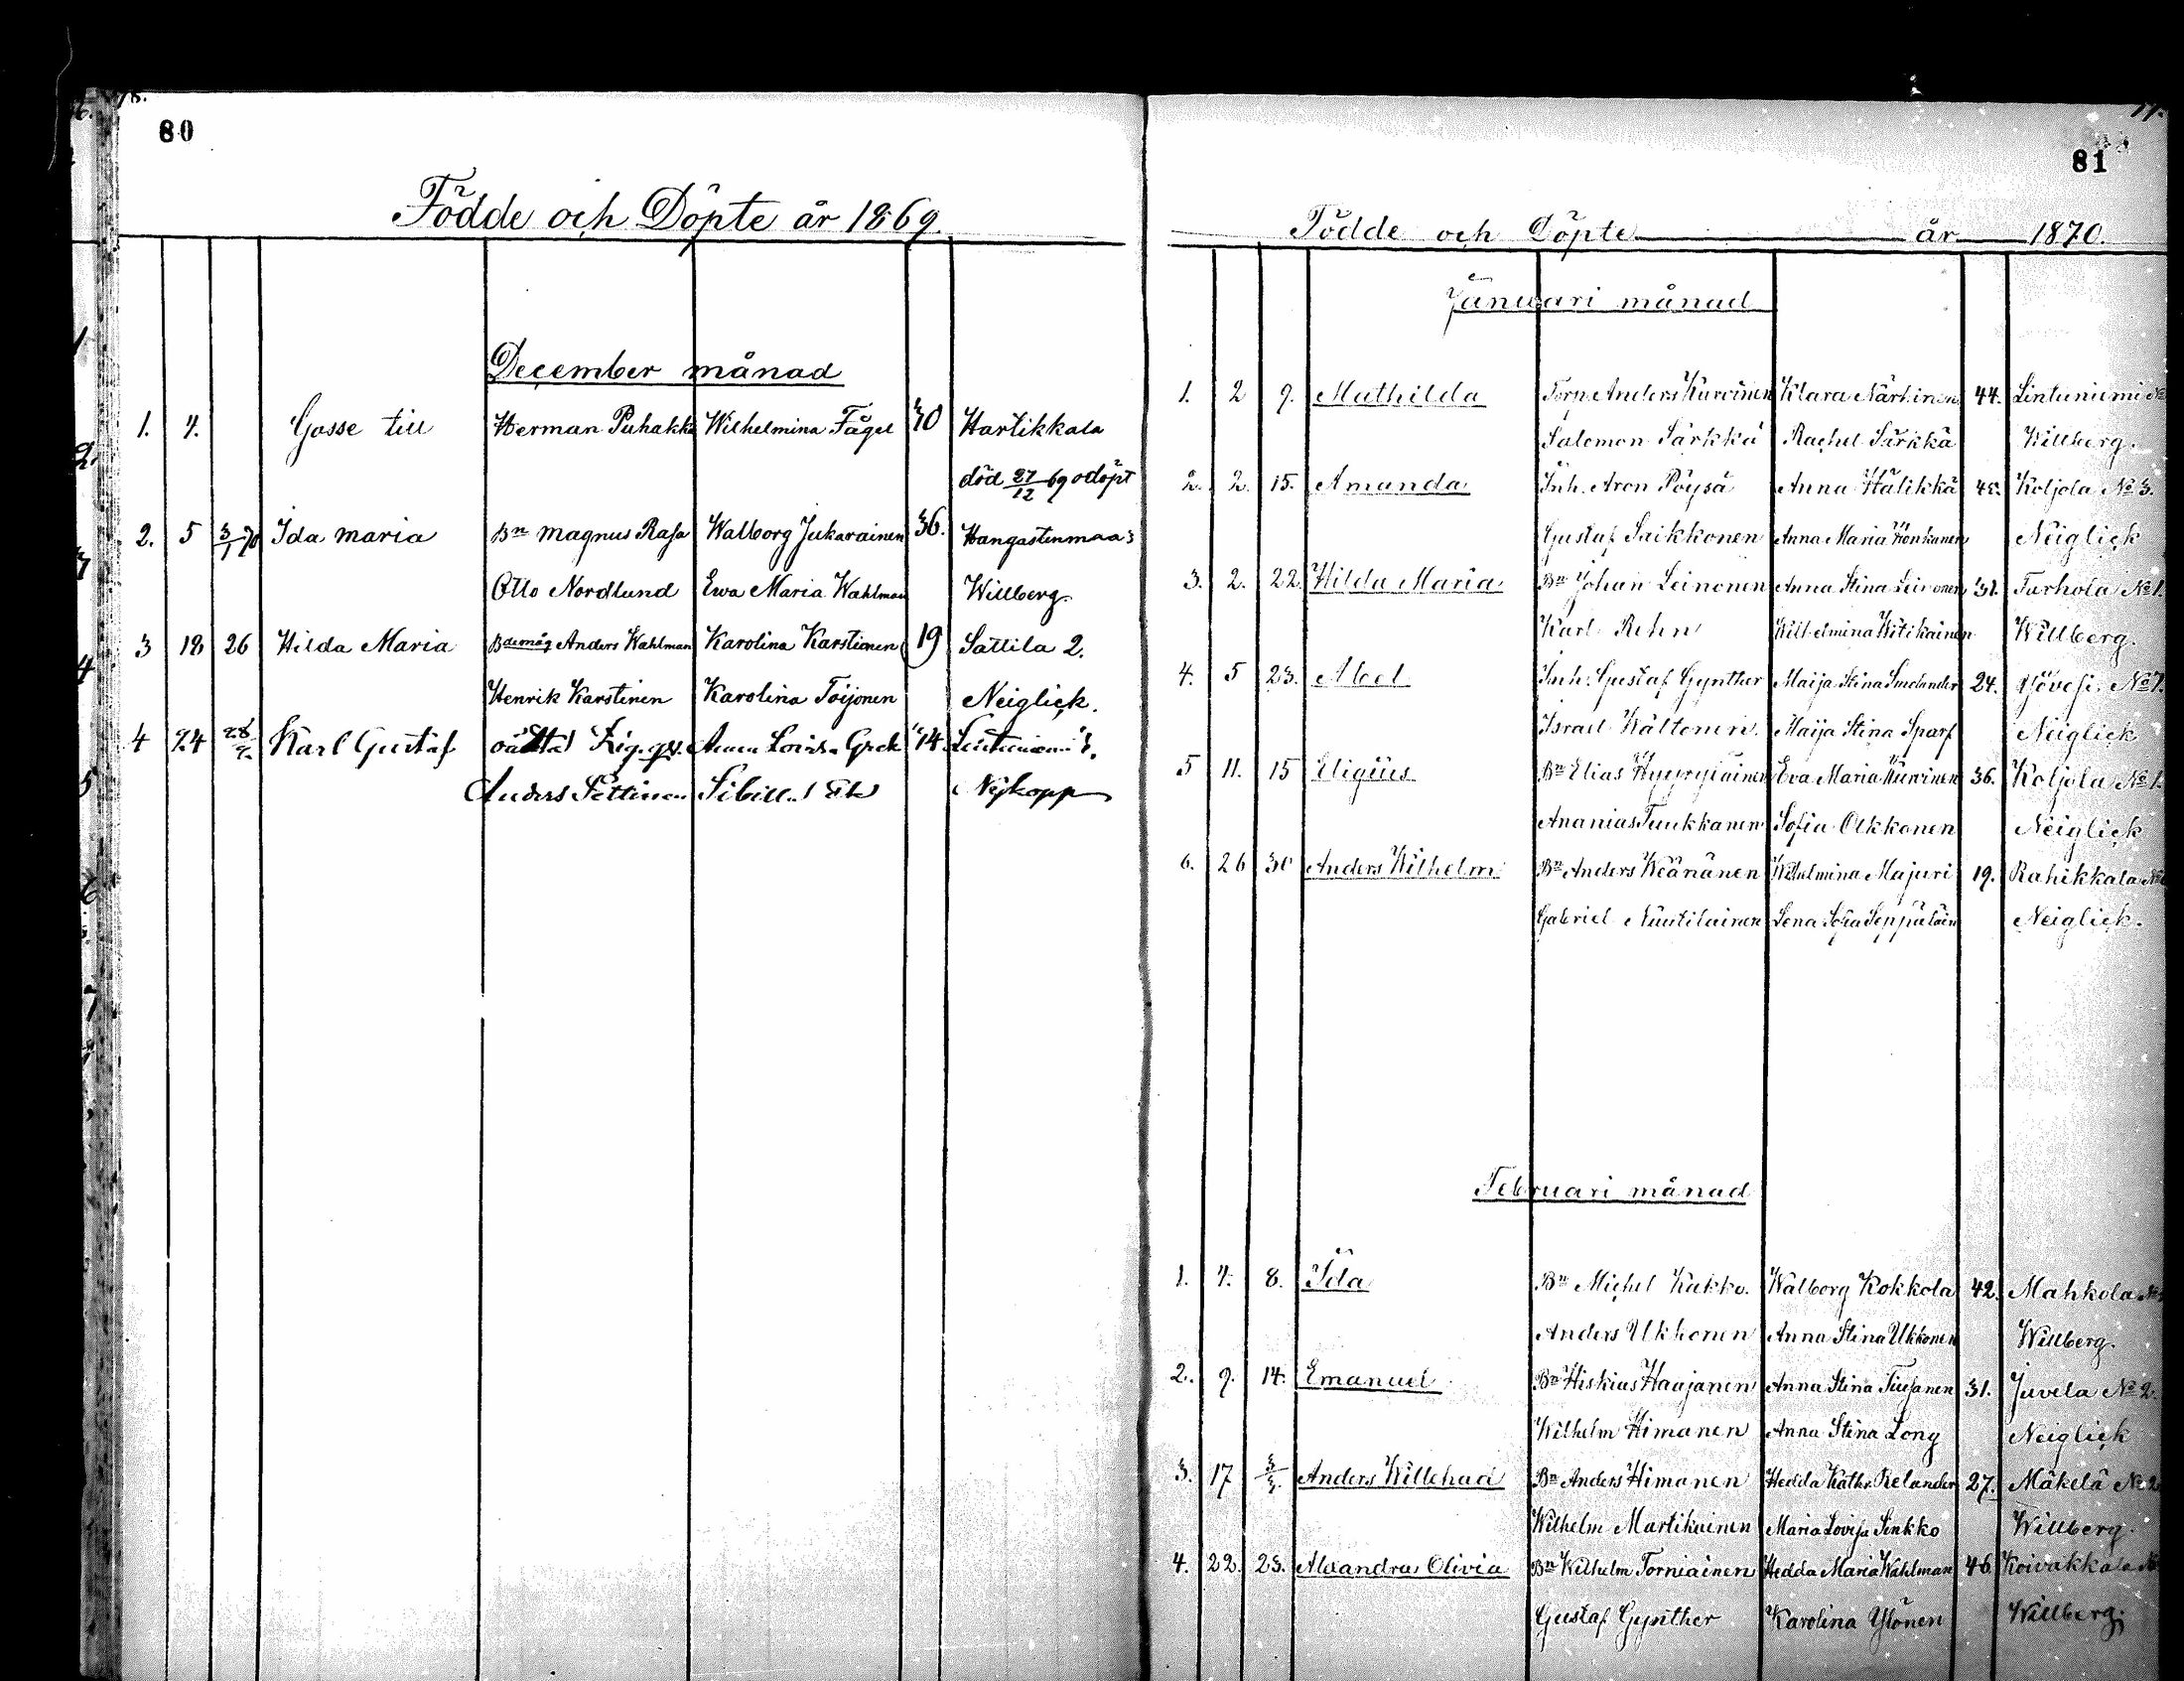 80
Födde och Döpte år 1869.
December månad
1. 4. Gosse till Herman Puhakka Wilhelmina Fågel 30 Hartikkala
död 27/12 69 odöpt
2. 5 3/1 70 Ida Maria Bn Magnus Rasa Walborg Jukarainen 36. Hangastenmaa 3
Otto Nordlund Ewa Maria Wahlman Willberg.
3 18 26 Hilda Maria Anders Wahlman Karolina Karstinen 19 Sattila 2.
Henrik Karstinen Karolina Toijonen Neiglick.
4 24 Karl Gustaf oäkta Anna Lovisa Grek 14
Anders Nykopp
81
Födde och Döpte år 1870.
Januari månad
1. 2 9. Mathilda Torp. Anders Kurvinen Klara Närhinen 44. Lintuniemi
Salomon Särkkä Rachel Särkkä Willberg.
2. 2. 15. Amanda Inh. Aron Pöysä Anna Hälikkä 45. Koljola No 3.
Gustaf Saikkonen Anna Maria Honkanen Neiglick
3. 2. 22. Hilda Maria Bn Johan Leinonen Anna Stina Leinonen 31. Turhola No 1.
Karl Rehn Wilhelmina Witikainen Willberg.
4. 5 23. Abel Inh. Gustaf Gynther Maija Stina Smelander 24. No 7.
Israel Kältonen Maija Stina Sparf Neiglick
5 11. 15 Eligius Bn Elias Hyyryläinen Eva Maria Kurvinen 36. Koljola No 1.
Ananias Tuukkanen Sofia Olkkonen Neiglick
6. 26 30 Anders Wilhelm Bn Anders Wäänänen Wilhelmina Majuri 19. Rahikkala
Gabriel Nuutilainen Lena Sofia Neiglick.
Februari månad
1. 4. 8. Ida Bn Michel Kukko. Walborg Kokkola 42. Mahkola
Anders Ukkonen Anna Stina Ukkonen Willberg.
2. 9. 14. Emanuel Bn Hiskias Haajanen Anna Stina Tiusanen 31. Juvela No 2.
Wilhelm Himanen Anna Stina Long Neiglick
3. 17 3/3. Anders Willehad Bn Anders Himanen Hedda Kathr. Relander 27. Mäkelä No 2
Wilhelm Martikainen Maria Lovisa Sinkko Willberg.
4. 22. 23. Alexandra Olivia Bn Wilhelm Torniainen Hedda Maria Wahlman 46 Koivakkala
Gustaf Gynther Karolina Ylönen Willberg.